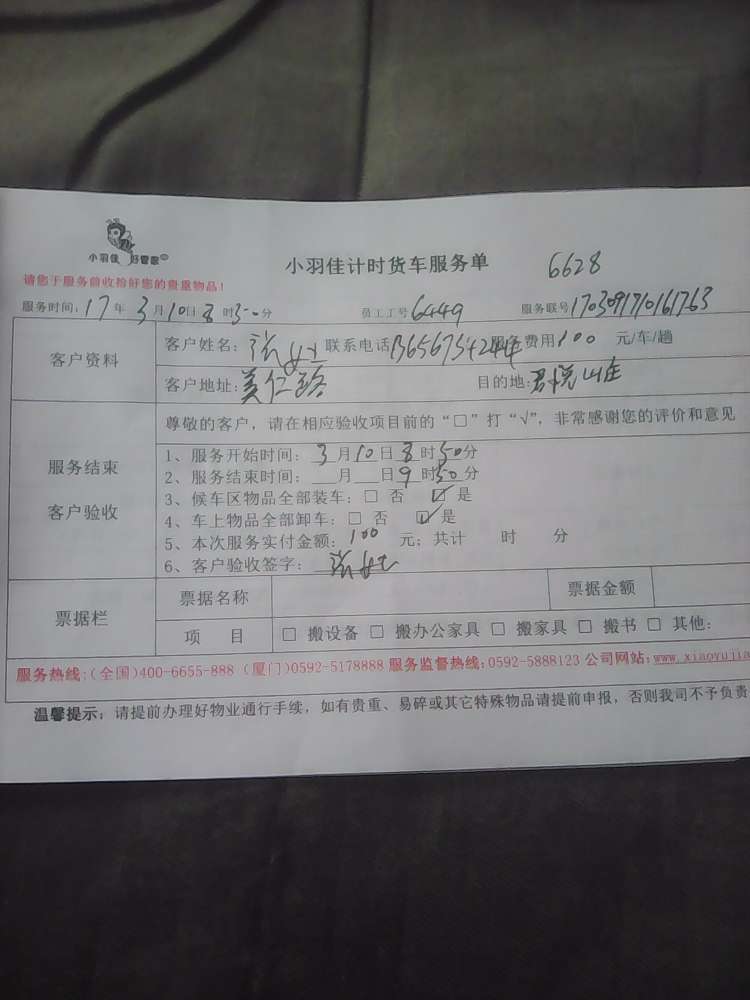 小羽佳 好管家
小羽佳计时货车服务单 6628
请您于服务前收拾好您的贵重物品！
服务时间：17年3月10日8时50分 员工工号6449 服务联号1703091710161763
客户资料
客户姓名： 联系电话13656754244 费用100 元/车/趟
客户地址：美仁路 目的地：君悦山庄
服务结束
客户验收
尊敬的客户，请在相应验收项目前的“□”打“√”，非常感谢您的评价和意见
1、服务开始时间：3月10日8时50分
2、服务结束时间：__月__日9时50分
3、候车区物品全部装车：□ 否 ☑ 是
4、车上物品全部卸车：□ 否 ☑ 是
5、本次服务实付金额：100 元；共计 时 分
6、客户验收签字：
票据栏
票据名称 票据金额
项 目 □ 搬设备 □ 搬办公家具 □ 搬家具 □ 搬书 □ 其他：
服务热线:(全国)400-6655-888 (厦门)0592-5178888 服务监督热线:0592-5888123 公司网站:www.xiaoyujia
温馨提示：请提前办理好物业通行手续，如有贵重、易碎或其它特殊物品请提前申报，否则我司不予负责